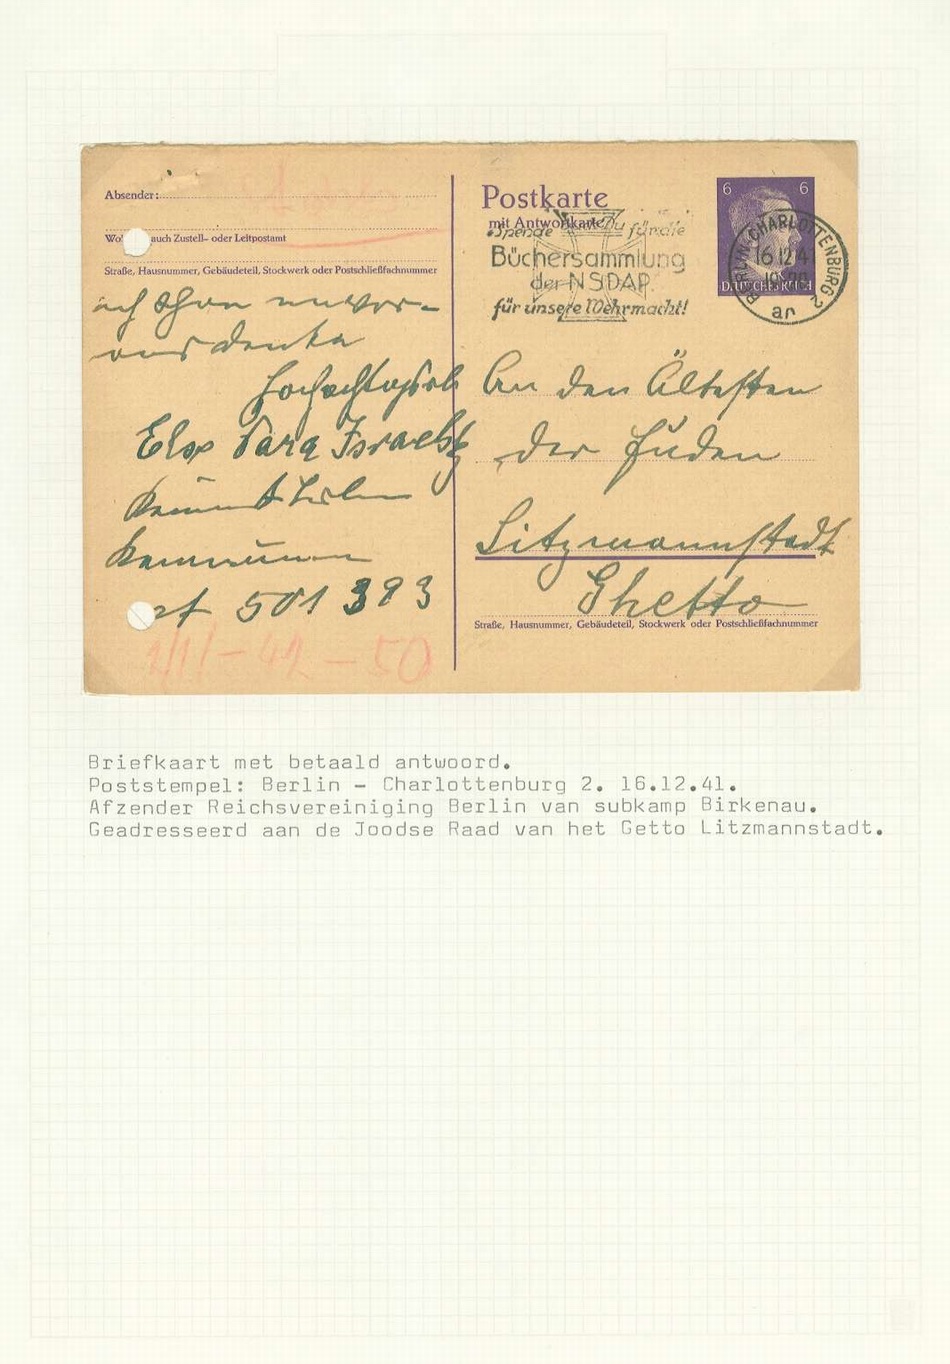 Absender:
Wo auch Zustell- oder Leitpostamt
Straße, Hausnummer, Gebäudeteil, Stockwerk oder Postschließfachnummer
ich schon im vor-
aus danke
Hochachtungsvoll
Else Sara Israelski
501 393
1/1/-42-50
Postkarte
mit Antwortkarte
Spende auch Du für die
Büchersammlung
der NSDAP.
für unsere Wehrmacht!
6 6
DEUTSCHES REICH
BERLIN-CHARLOTTENBURG 2
16.12.4
ar
An den Ältesten
der Juden
Litzmannstadt
Ghetto
Straße, Hausnummer, Gebäudeteil, Stockwerk oder Postschließfachnummer
Briefkaart met betaald antwoord.
Poststempel: Berlin - Charlottenburg 2. 16.12.41.
Afzender Reichsvereiniging Berlin van subkamp Birkenau.
Geadresseerd aan de Joodse Raad van het Getto Litzmannstadt.